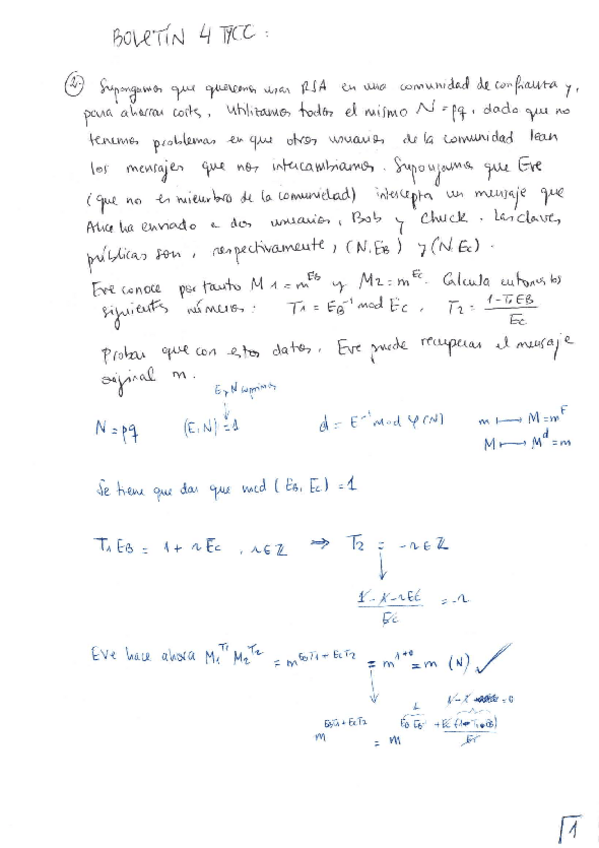 BOLETÍN 4 TYCC:
2.- Supongamos que queremos usar RSA en una comunidad de confianza y,
para ahorrar costs, utilizamos todos el mismo N=pq, dado que no
tenemos problemas en que otros usuarios de la comunidad lean
los mensajes que nos intercambiamos. Supongamos que Eve
(que no es miembro de la comunidad) intercepta un mensaje que
Alice ha enviado a dos usuarios, Bob y Chuck. Las claves
públicas son, respectivamente, (N, EB) y (N, EC).
Eve conoce por tanto M1 = m^EB y M2 = m^EC. Calcula entonces los
siguientes números: T1 = EB^-1 mod EC, T2 = (1-T1EB)/EC
Probar que con estos datos, Eve puede recuperar el mensaje
original m.
E y N coprimos
N=pq (E,N)=1 d = E^-1 mod φ(N) m ↦ M=m^E
M ↦ M^d=m
Se tiene que dar que mcd (EB, EC) = 1
T1 EB = 1 + r EC, r∈Z ⇒ T2 = -r ∈ Z
(1-1-rEC)/EC = -r
Eve hace ahora M1^T1 M2^T2 = m^(EBT1+ECT2) = m^(1+0) = m (N) ✓
m^(EBT1+ECT2) = m
1